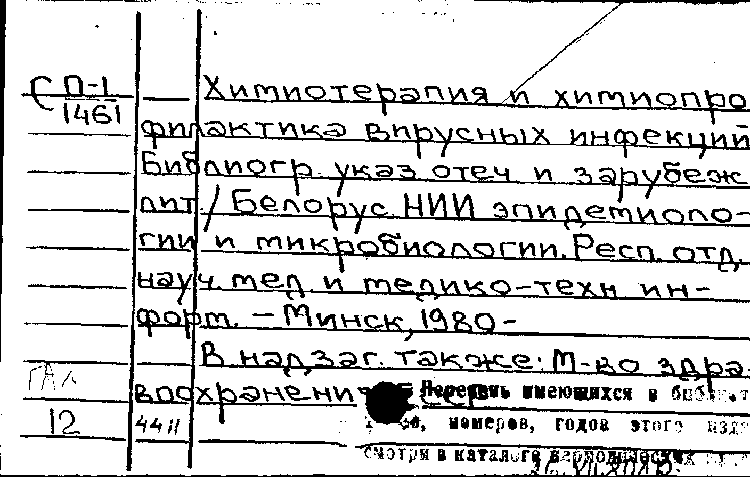 С П-1
1461
Химиотерапия и химиопро
филактика вирусных инфекций
Библиогр. указ. отеч и зарубеж
лит. / Белорус. НИИ эпидемиоло-
гии и микробиологии. Респ. отд.
науч. мед. и медико-техн ин-
форм. - Минск, 1980-
В надзаг. также: М-во здра-
воохранени
ГАЛ
12
4411
Перечень имеющихся в
номеров, годов этого
смотри в каталоге периодических